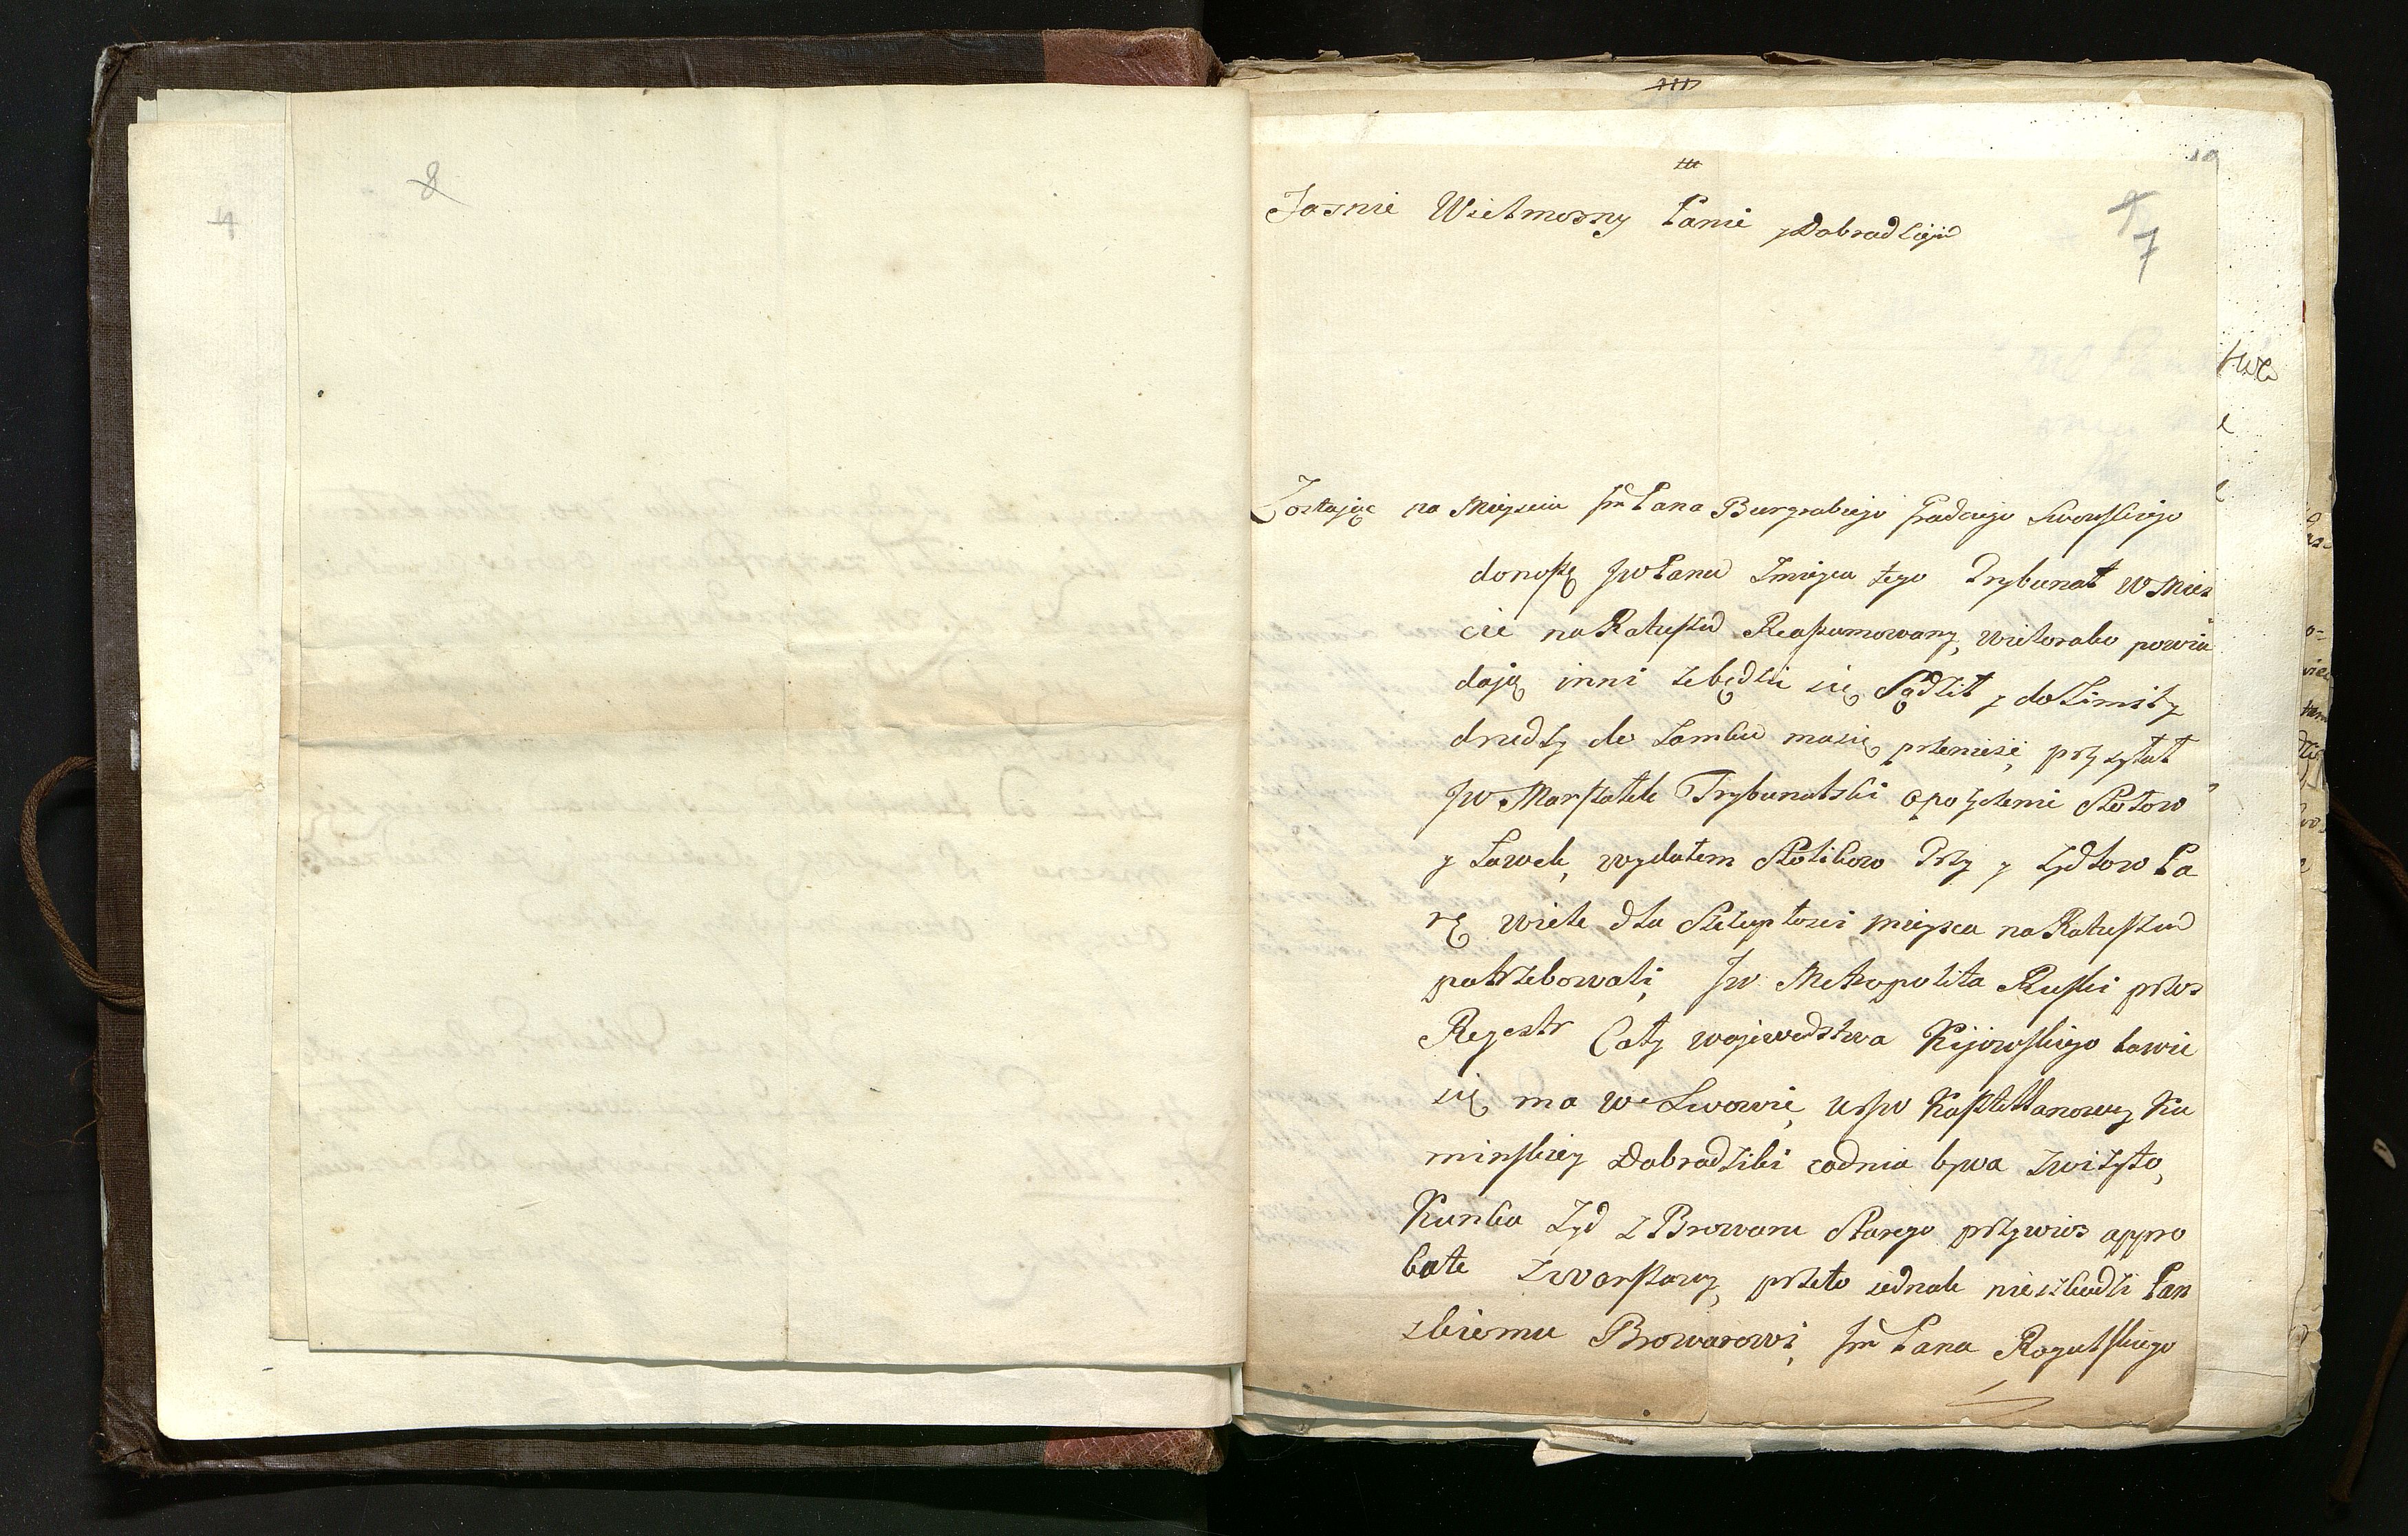 8
4
19
7
Jasnie Wielmozny Panie y Dobradzieju
Zostaiąc na Mieyscu Jm Pana Burgrabiego Grodzgo Lwowskiego
donoszę JW Panu Zmieysca tego Trybunał w Mies
cie na Ratuszu Reasumowany, wielorako powia
daią inni zebędzie się Sądził y do Limity
drudzy do Zamku masię przenieść, przysyłał
JW Marszałek Trybunalski opozyczenie Stołow
y Ławek, wydałem Stolikow Trzy y Zydlow Pa
rę wiele dla Szczupłosci mieysca na Ratuszu
potrzebowali, JW Metropolita Ruski przez
Regestr Cały wojewodztwa Kijowskiego bawić
się ma we Lwowie, u JW Kasztellanowy Ka
minskiey Dobradziki codnia bywa zwizyto,
Kunba Zyd z Browaru Starego przywios appro
bate z Warszawy, przeto iednak nieszkodzi Pan
skiemu Browarowi, Jm Pana Rogulskiego